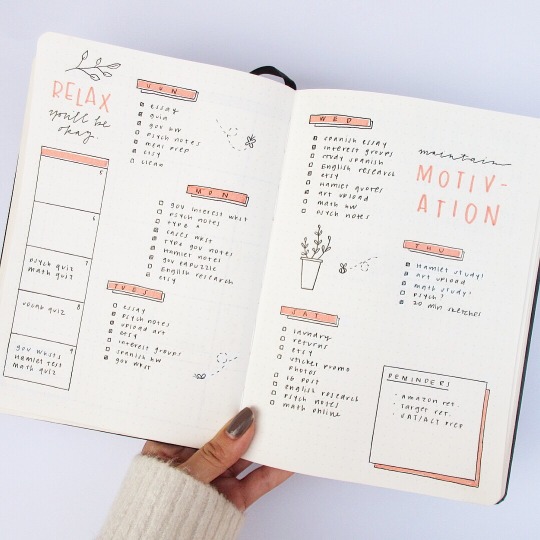 RELAX
you'll be
okay.
5
6
psych quiz 7
math quiz
vocab quiz 8
gov wksts 9
Hamlet test
math quiz
SUN
essay
quia
gov hw
psych notes
meal prep
etsy
clean
MON
gov interest wkst
psych notes
type
cases wkst
type gov notes
Hamlet notes
gov papuzzle
English research
etsy
TUES
essay
psych notes
upload art
etsy
interest groups
spanish hw
gov wkst
WED
spanish essay
interest groups
study spanish
English research
etsy
Hamlet quotes
art upload
math hw
psych notes
maintain
MOTIV-
ATION
THU
Hamlet study!
art upload
math study!
psych?
20 min sketches
SAT
laundry
returns
etsy
sticker promo
photos
IG post
english research
psych notes
math online
REMINDERS
· amazon ret.
· Target ret.
· SAT/ACT prep